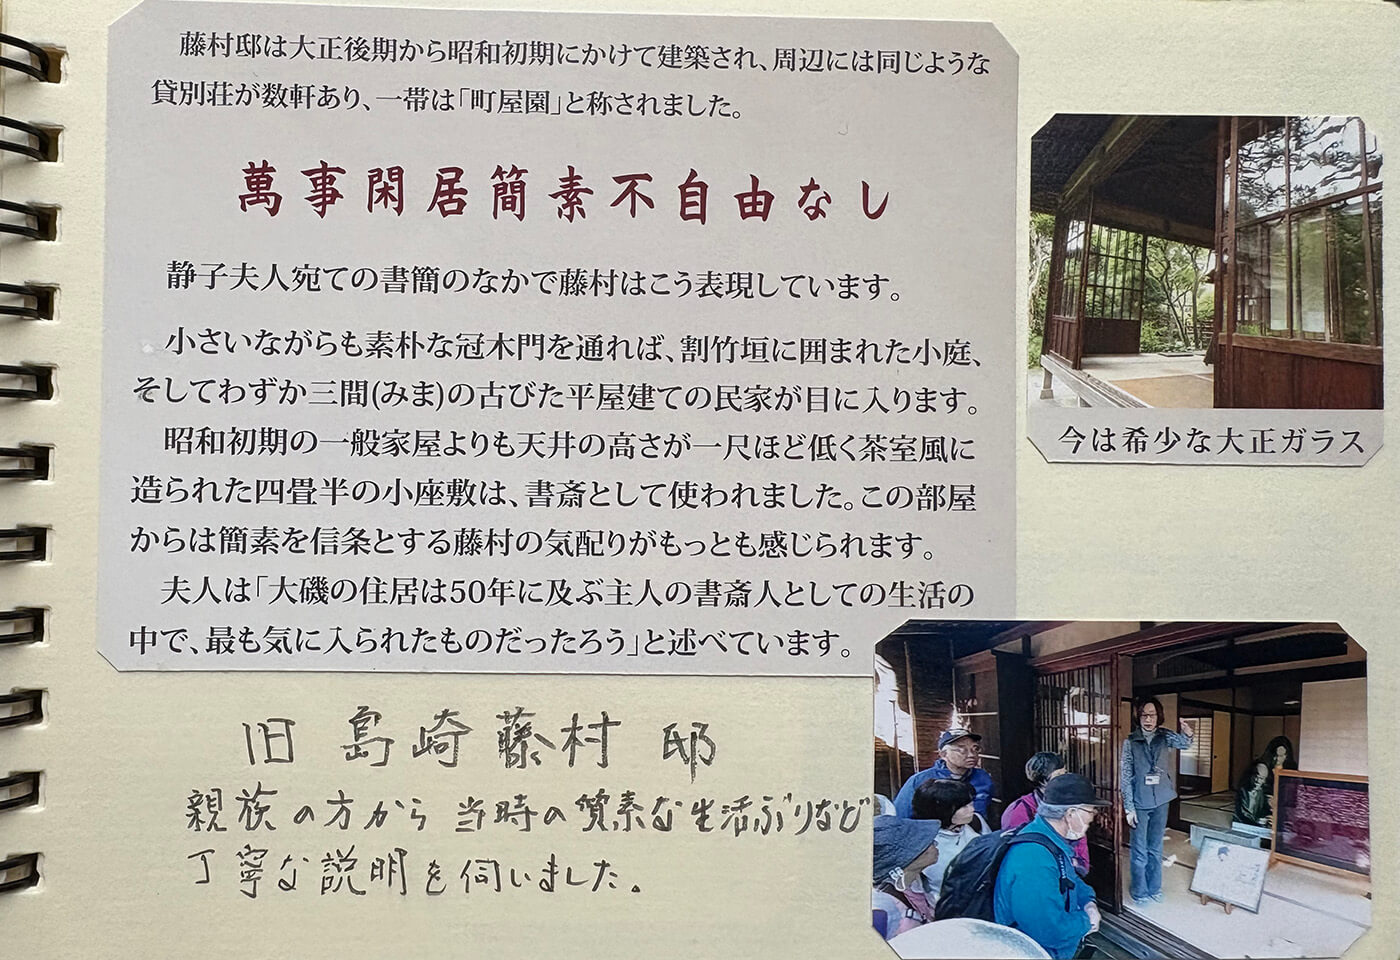 藤村邸は大正後期から昭和初期にかけて建築され、周辺には同じような
貸別荘が数軒あり、一帯は「町屋園」と称されました。
萬事閑居簡素不自由なし
静子夫人宛ての書簡のなかで藤村はこう表現しています。
小さいながらも素朴な冠木門を通れば、割竹垣に囲まれた小庭、
そしてわずか三間(みま)の古びた平屋建ての民家が目に入ります。
昭和初期の一般家屋よりも天井の高さが一尺ほど低く茶室風に
造られた四畳半の小座敷は、書斎として使われました。この部屋
からは簡素を信条とする藤村の気配りがもっとも感じられます。
夫人は「大磯の住居は50年に及ぶ主人の書斎人としての生活の
中で、最も気に入られたものだったろう」と述べています。
今は希少な大正ガラス
旧 島崎藤村 邸
親族の方から 当時の質素な生活ぶりなど
丁寧な説明を伺いました。